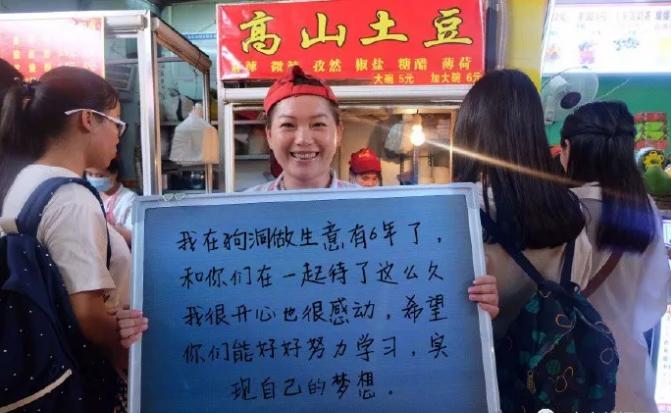 高山土豆
微辣 孜然 椒盐 糖醋 薄荷
大碗 5元 加大碗 6元
我在狗洞做生意有6年了,
和你们在一起待了这么久
我很开心也很感动,希望
你们能好好努力学习,实
现自己的梦想.